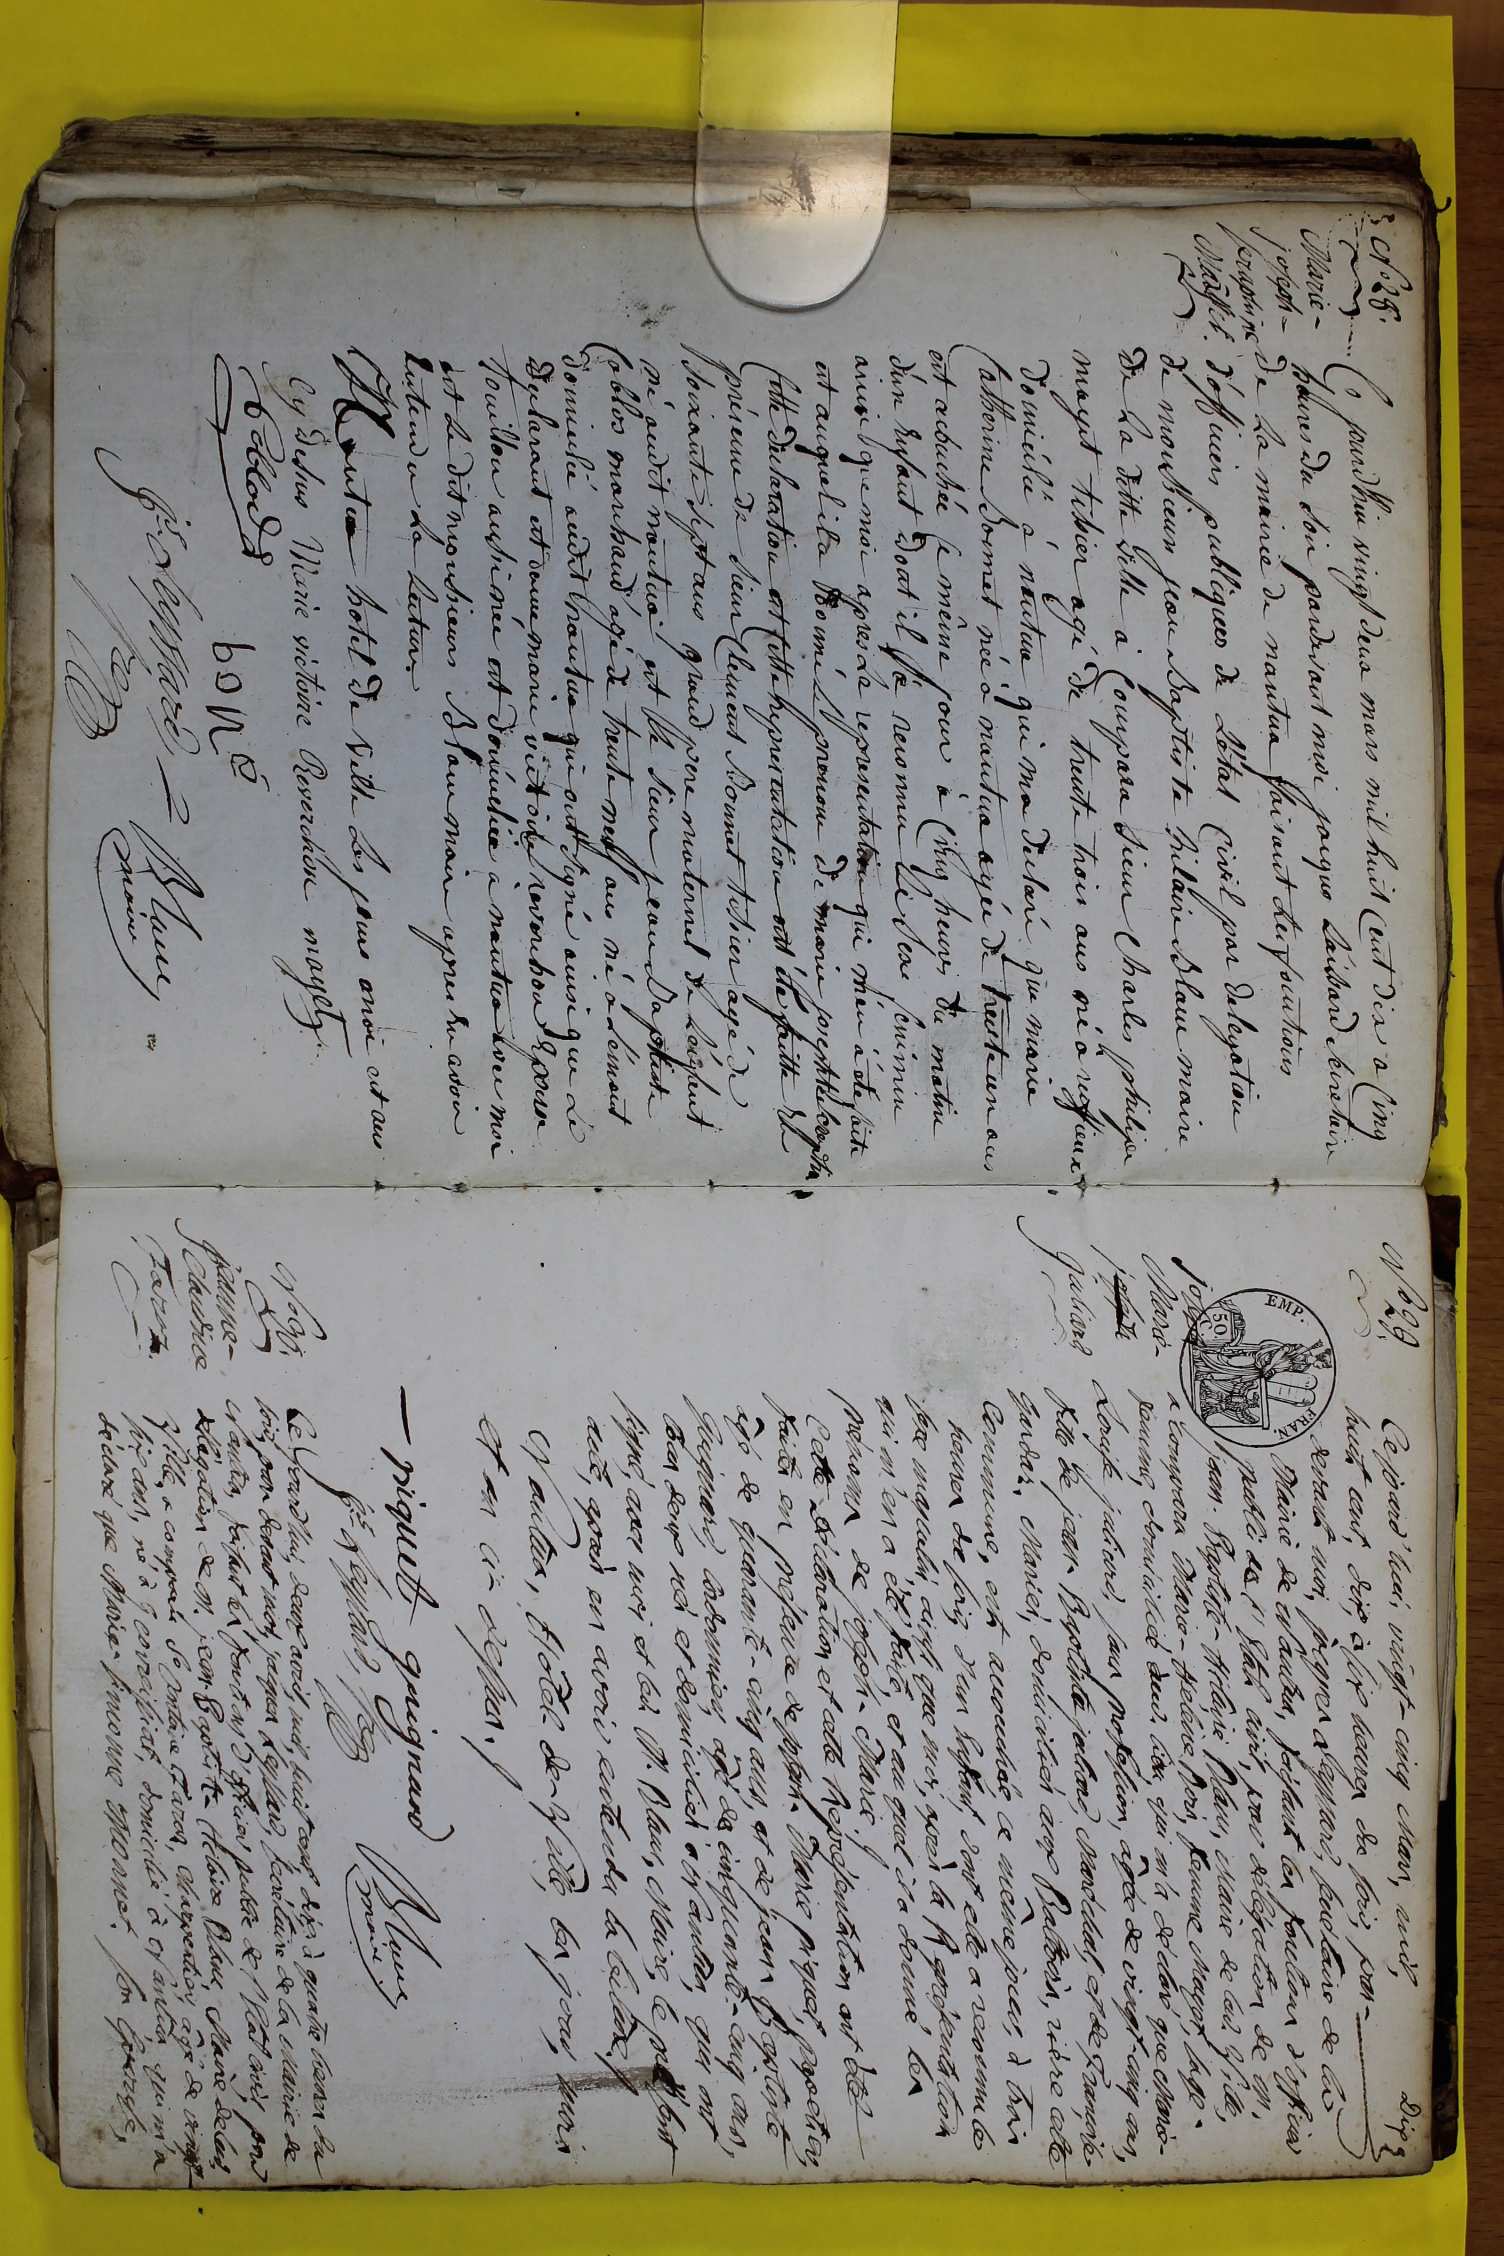 N° 28.
Marie-
joseph-
seraphine
Mayet.
Ce jourdhui vingt deux mars mil huit Cent dix a Cinq
heures du soir pardevant moi jacques Leissard secretaire
de La mairie de nantua faisant Les fonctions
d'officier publiques de L'état Civil par delegation
de monsieur jean Baptiste hilaire Blanc maire
de La ditte Ville a Comparu sieur Charles philipe
mayet tissier agé de trente trois ans né à
domicilié à nantua qui ma declaré que marie
Catherine Bonnet née a nantua agée de trente un ans
est acouchée Ce même jour à Cinq heures du matin
d'un Enfant dont il a reconnu Le sexe feminin
ainsi que moi apres La representation qui m'en a été faite
et auquel il a donné Le prenom de marie joseph seraphine
Cette declaration et Cette representation ont été faitte En
présence de sieur Clement Bonnet tissier agé de
soixante sept ans grand pere maternel de L'enfant
né audit nantua et Le sieur jean Baptiste
Coblod marchand agé de trente neuf ans né a Lémout
domicilié audit nantua qui ont signé ainsi que Le
declarant et dame marie victoire reverchon Epouse
touillon aussi née et domiciliée a nantua avec moi
et Le dit monsieur Blanc maire apres En avoir
Entendu La Lecture
A Nantua hotel de ville Les jour mois et ans
Cy dessus Marie victoire Reverchon mayet
Coblod
bonné
Js. Leyssard
Blanc
maire
N° 29
Dix
EMP. FRAN.
50
C.
joseph
Marie-
Juliard
Ce jourd'hui, vingt-cinq Mars, mil,
huit cent, dix, à six heures du soir, par-
devant moi, jacques Leyssard, secrétaire de la
Mairie de Nantua, faisant les fonctions d'officier
public de l'état civil, par délégation de M.
jean-Baptiste-Hilaire Blanc, Maire de lad. Ville,
a Comparu Marie-Helène Bon, femme Mayet, sage-
femme, domiciliée aud. lieu, qui m'a déclaré que Marie-
Louise juliard, sans profession, âgée de vingt-cinq ans,
fille de jean-Baptiste juliard, Maréchal, et de Françoise
Gurdaz, Mariés, domiciliés
Commune, est accouchée ce même jour, à trois
heures du soir, d'un Enfant, dont elle a reconnu le
sexe masculin, ainsi que moi, après la Représentation
qui m'en a été faite, et au quel il a donné les
prénoms de joseph-Marie.
Cette Déclaration et cette Représentation ont été
faites en présence de joseph-Marie piquet,
âgé de quarante-cinq ans, et de jean-Baptiste
Guignard, Cordonnier, âgé de cinquante-cinq ans,
tous deux nés et domiciliés à Nantua, qui ont
signé, avec moi et led. M. Blanc, Maire, le présent
acte, après en avoir entendu la lecture.
Nantua, Hôtel de Ville, les jour, mois
et an ci-dessus.
piquet guignard
Js. Leyssard,
Blanc
maire
N° 30.
jeanne-
Claudine
Favre.
Ce jourd'hui, deux avril, mil, huit cent dix, à quatre heures du
soir, par devant moi, jacques Leyssard, secrétaire de la Mairie de
Nantua, faisant les fonctions d'officier public de l'état civil, par
délégation de M. jean-Baptiste-Hilaire Blanc, Maire de lad.
Ville, a comparu Favre, charpentier, âgé de vingt-
six ans, né à domicilié à Nantua, qui m'a
déclaré que Marie-